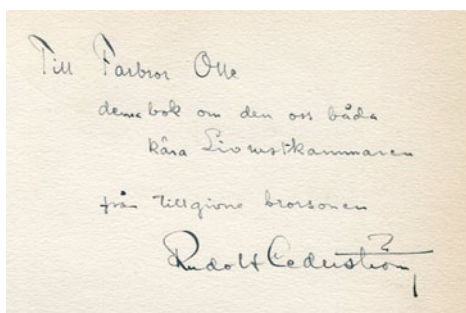 Till Farbror Olle
denna bok om den oss båda
kära Livrustkammaren
från tillgivne brorsonen
Rudolf Cederström